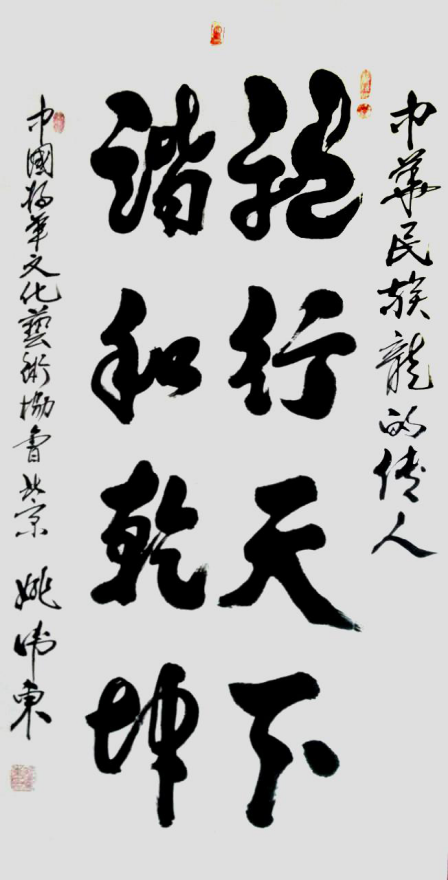 中華民族龍的傳人
龍行天下
諧和乾坤
中國華文化藝術協會北京 姚偉東